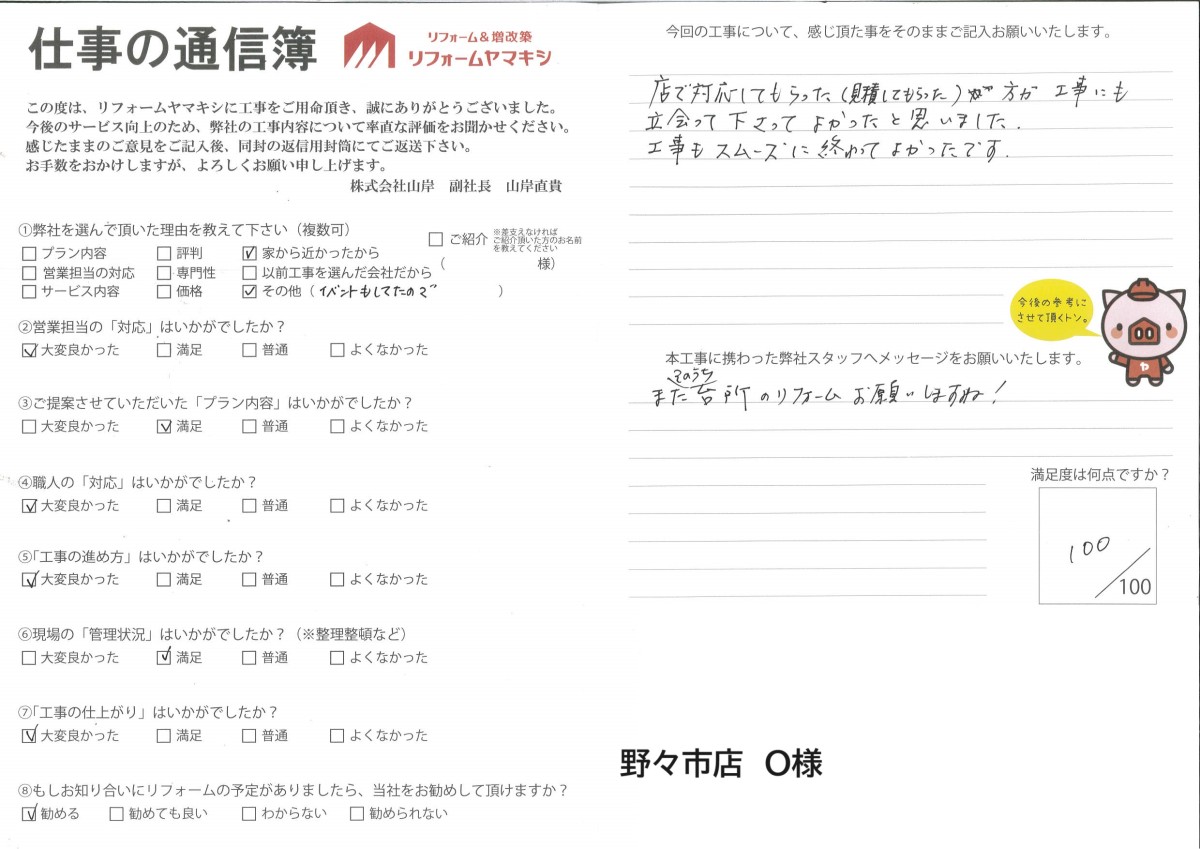 仕事の通信簿
リフォーム&増改築
リフォームヤマキシ
この度は、リフォームヤマキシに工事をご用命頂き、誠にありがとうございました。
今後のサービス向上のため、弊社の工事内容について率直な評価をお聞かせください。
感じたままのご意見をご記入後、同封の返信用封筒にてご返送下さい。
お手数をおかけしますが、よろしくお願い申し上げます。
株式会社山岸 副社長 山岸直貴
①弊社を選んで頂いた理由を教えて下さい（複数可）
□ プラン内容 □ 評判 ☑ 家から近かったから □ ご紹介 ※差支えなければご紹介頂いた方のお名前を教えてください
□ 営業担当の対応 □ 専門性 □ 以前工事を選んだ会社だから （ 様）
□ サービス内容 □ 価格 ☑ その他（イベントもしてたので ）
②営業担当の「対応」はいかがでしたか？
☑ 大変良かった □ 満足 □ 普通 □ よくなかった
③ご提案させていただいた「プラン内容」はいかがでしたか？
□ 大変良かった ☑ 満足 □ 普通 □ よくなかった
④職人の「対応」はいかがでしたか？
☑ 大変良かった □ 満足 □ 普通 □ よくなかった
⑤「工事の進め方」はいかがでしたか？
☑ 大変良かった □ 満足 □ 普通 □ よくなかった
⑥現場の「管理状況」はいかがでしたか？（※整理整頓など）
□ 大変良かった ☑ 満足 □ 普通 □ よくなかった
⑦「工事の仕上がり」はいかがでしたか？
☑ 大変良かった □ 満足 □ 普通 □ よくなかった
⑧もしお知り合いにリフォームの予定がありましたら、当社をお勧めして頂けますか？
☑ 勧める □ 勧めても良い □ わからない □ 勧められない
今回の工事について、感じ頂た事をそのままご記入お願いいたします。
店で対応してもらった（見積してもらった）方が 工事にも
立会って下さってよかったと思いました．
工事もスムーズに終わってよかったです．
今後の参考に
させて頂くトン。
ヤ
本工事に携わった弊社スタッフへメッセージをお願いいたします。
そのうち
また台所のリフォームお願いしますね！
満足度は何点ですか？
100
/100
野々市店 O様